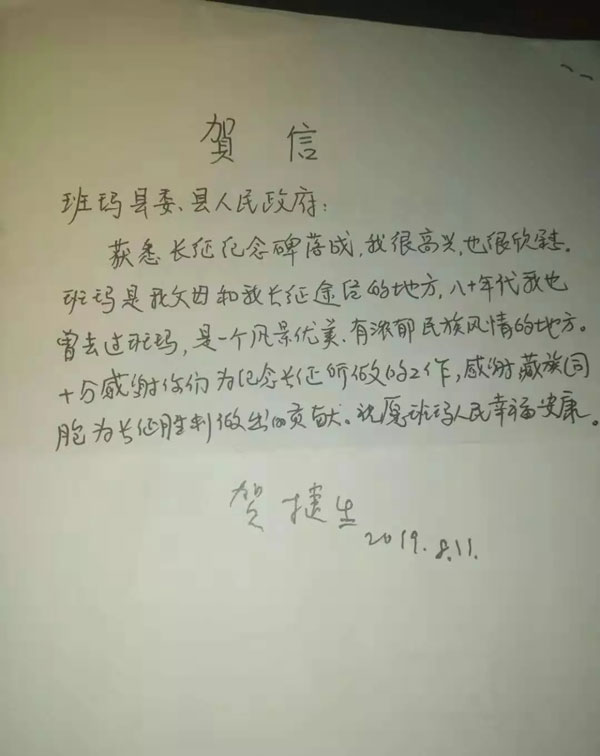 贺 信
班玛县委、县人民政府:
获悉长征纪念碑落成,我很高兴,也很欣慰。
班玛是我父母和我长征途径的地方,八十年代我也
曾去过班玛,是一个风景优美、有浓郁民族风情的地方。
十分感谢你们为纪念长征所做的工作,感谢藏族同
胞为长征胜利做出的贡献。祝愿班玛人民幸福安康。
贺捷生
2019.8.11.